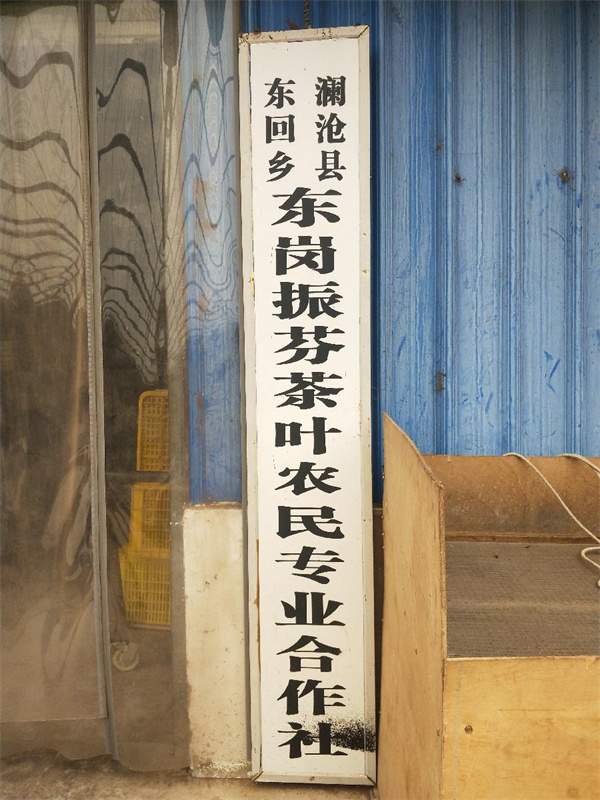 澜沧县
东回乡
东岗振芬茶叶农民专业合作社